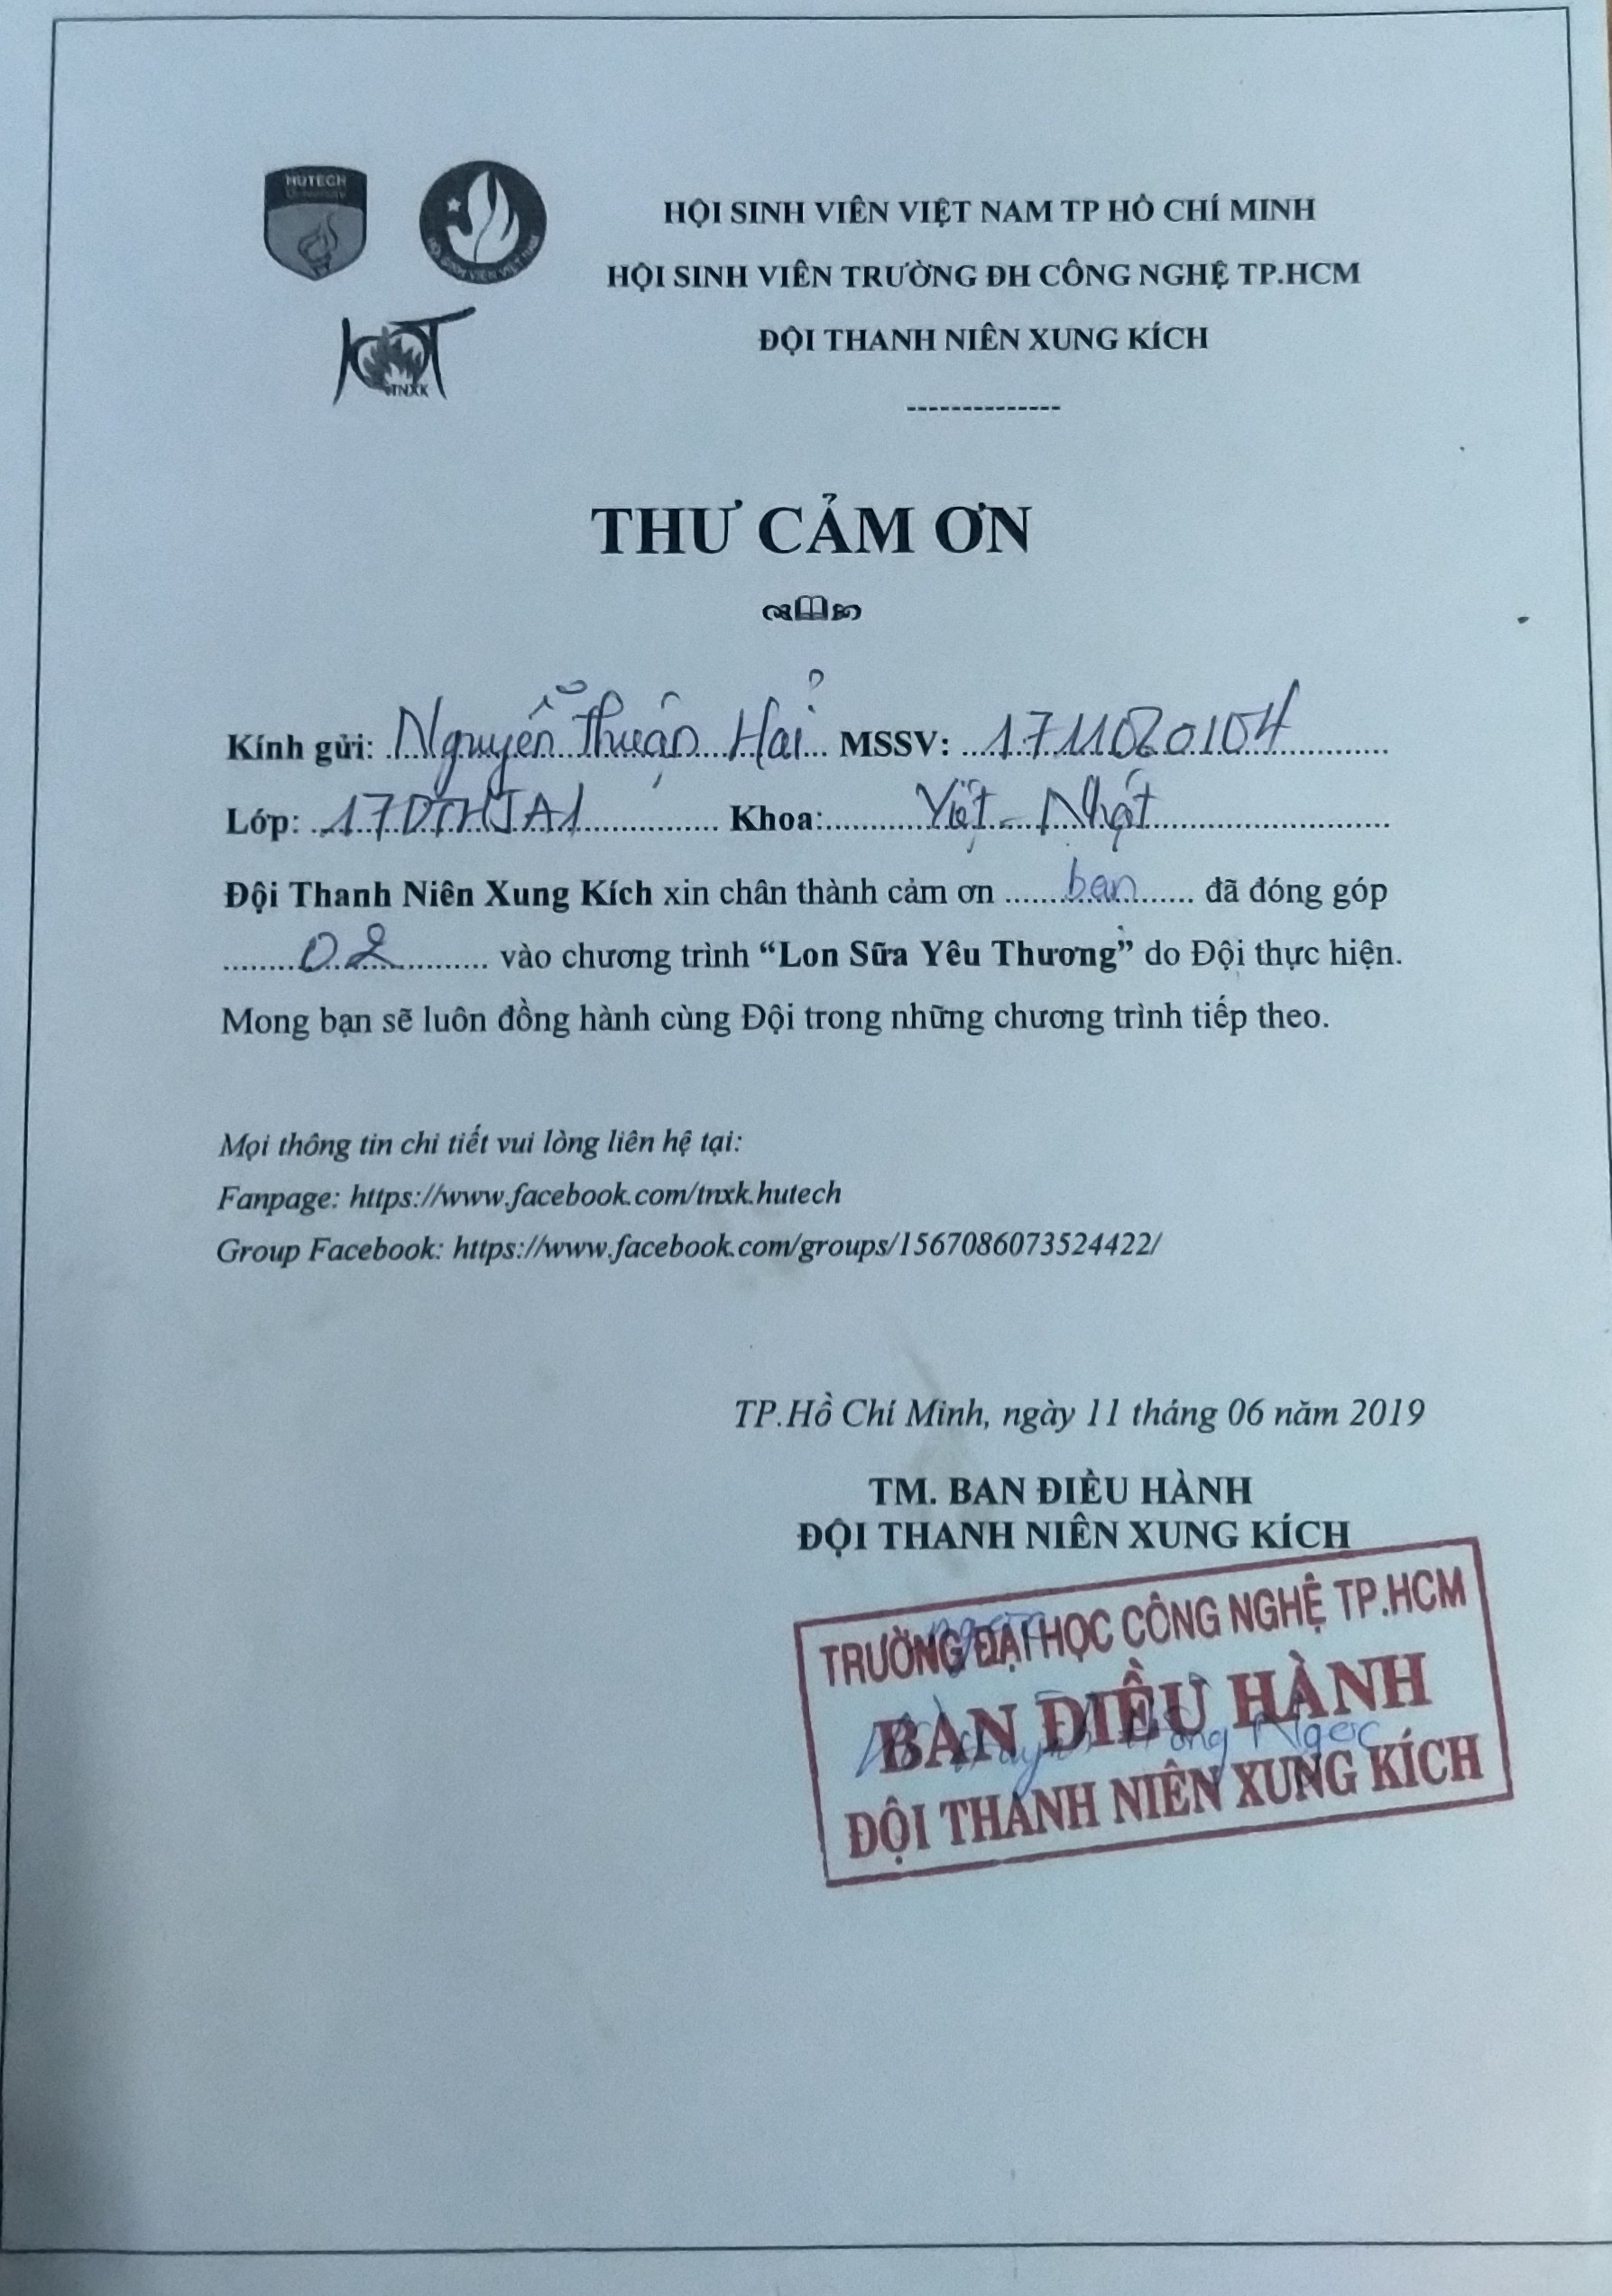 HUTECH
HỘI SINH VIÊN VIỆT NAM
TNXK
HỘI SINH VIÊN VIỆT NAM TP HỒ CHÍ MINH
HỘI SINH VIÊN TRƯỜNG ĐH CÔNG NGHỆ TP.HCM
ĐỘI THANH NIÊN XUNG KÍCH
--------------
THƯ CẢM ƠN
Kính gửi: Nguyễn Thuận Hải MSSV: 1711020104
Lớp: 17DTHJA1 Khoa: Việt - Nhật
Đội Thanh Niên Xung Kích xin chân thành cảm ơn bạn đã đóng góp
02 vào chương trình “Lon Sữa Yêu Thương” do Đội thực hiện.
Mong bạn sẽ luôn đồng hành cùng Đội trong những chương trình tiếp theo.
Mọi thông tin chi tiết vui lòng liên hệ tại:
Fanpage: https://www.facebook.com/tnxk.hutech
Group Facebook: https://www.facebook.com/groups/1567086073524422/
TP.Hồ Chí Minh, ngày 11 tháng 06 năm 2019
TM. BAN ĐIỀU HÀNH
ĐỘI THANH NIÊN XUNG KÍCH
TRƯỜNG ĐẠI HỌC CÔNG NGHỆ TP.HCM
BAN ĐIỀU HÀNH
Ngọc
ĐỘI THANH NIÊN XUNG KÍCH